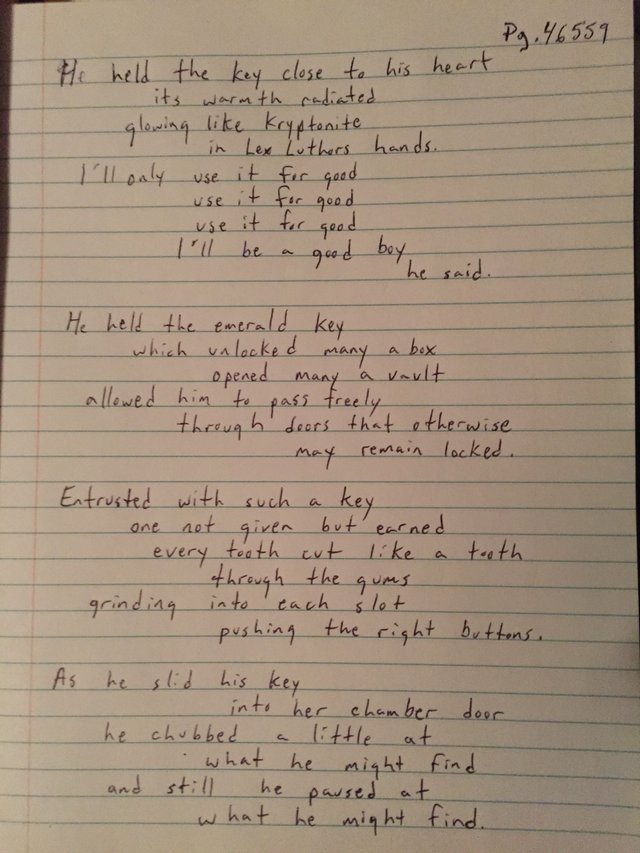 Pg. 46559
He held the key close to his heart
its warmth radiated
glowing like Kryptonite
in Lex Luthers hands.
I'll only use it for good
use it for good
use it for good
I'll be a good boy
he said.
He held the emerald key
which unlocked many a box
opened many a vault
allowed him to pass freely
through doors that otherwise
may remain locked.
Entrusted with such a key
one not given but earned
every tooth cut like a tooth
through the gums
grinding into each slot
pushing the right buttons.
As he slid his key
into her chamber door
he chubbed a little at
what he might find
and still he paused at
what he might find.